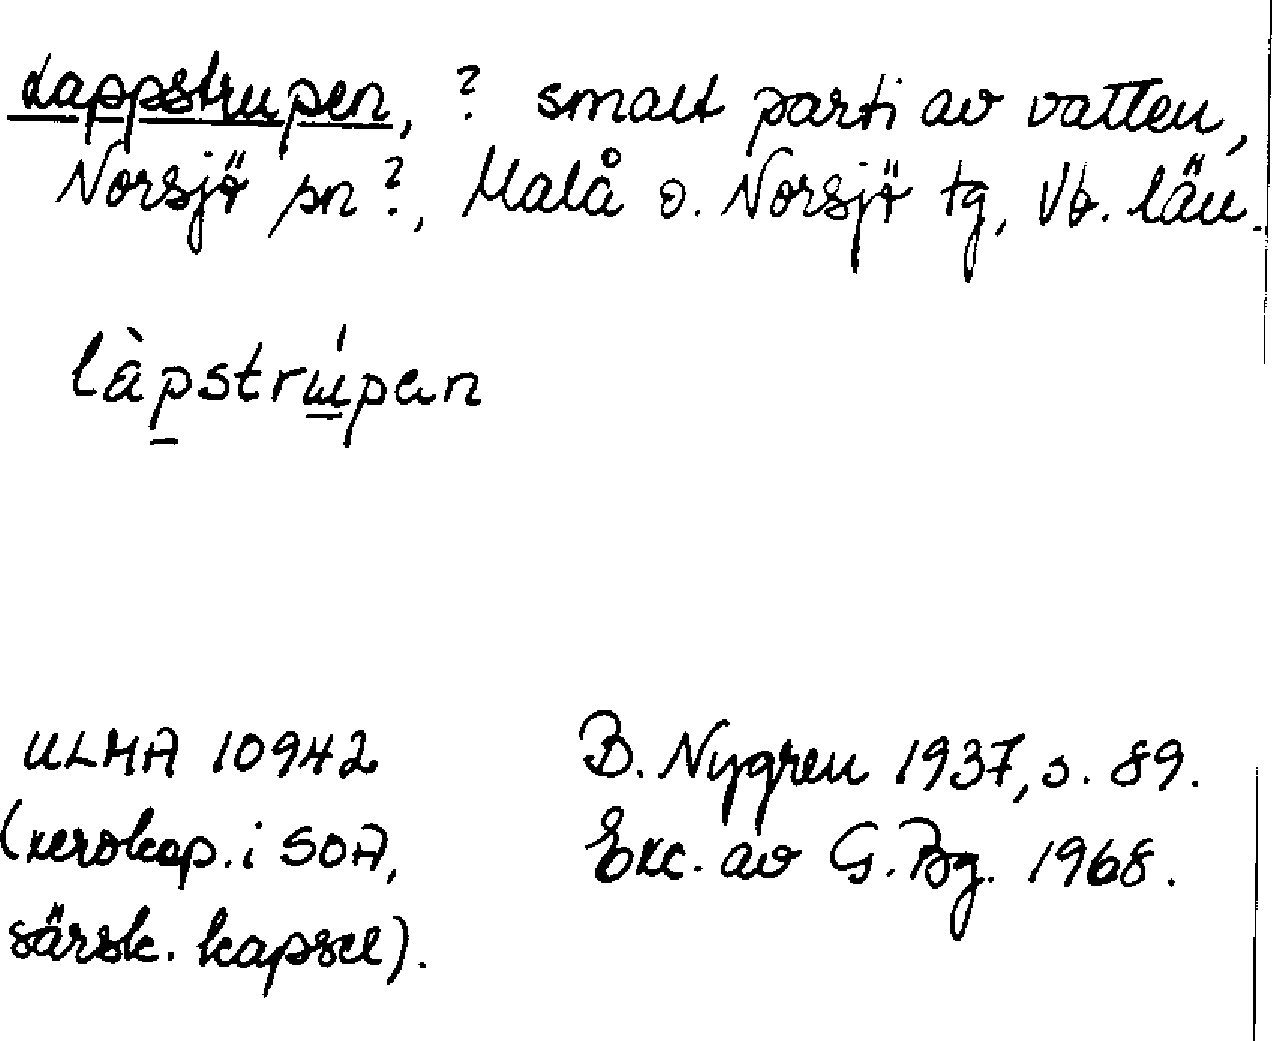 Lappstrupen, ? smalt parti av vatten,
Norsjö sn ?, Malå o. Norsjö tg, Vb. län.
làpstrúpan
ULMA 10942
(xerokop. i SOA,
särsk. kapsel).
B. Nygren 1937, s. 89.
Exc. av G. Bg. 1968.